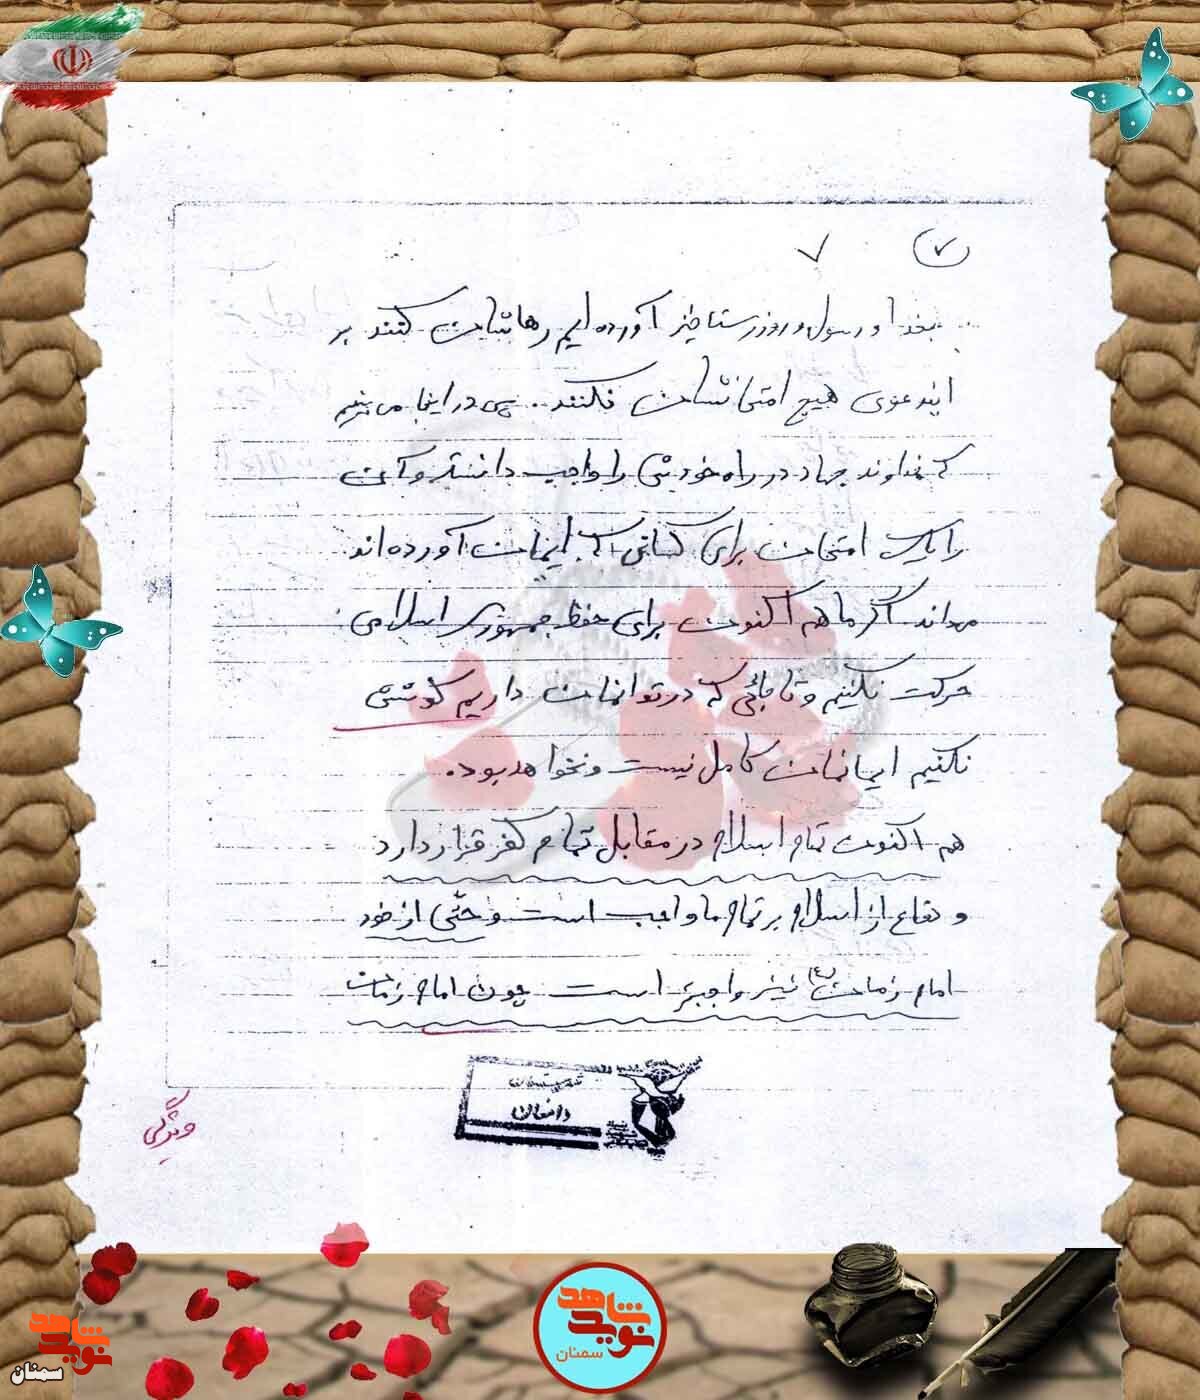 ۷ ۷
بخدا و رسول و روز رستاخیز آورده ایم رهاشان کنند بر
ایندعوی هیچ امتحانشان نکنند.. پس در اینجا می بینیم
که خداوند جهاد در راه خودش را واجب دانسته و آن
را یک امتحان برای کسانی که ایمان آورده اند
میداند اگر ما هم اکنون برای حفظ جمهوری اسلامی
حرکت نکنیم و تا جائی که در توانمان داریم کوشش
نکنیم ایمانمان کامل نیست و نخواهد بود.
هم اکنون تمام اسلام در مقابل تمام کفر قرار دارد
و دفاع از اسلام بر تمام ما واجب است و حتّی از خود
امام زمان (ع) نیز واجبتر است چون امام زمان
دامغان
ویژگی
نوید شاهد
سمنان
نوید شاهد
سمنان